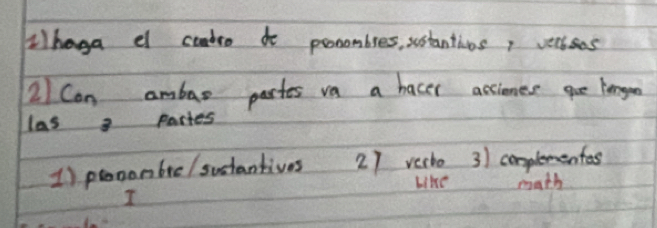 1) haga el cuadro de pronombres, sustantivos y verbos
2) Con ambas partes va a hacer acciones que tengan
las 3 partes
1) pronombre/sustantivos 2) verbo 3) complementos
I like math